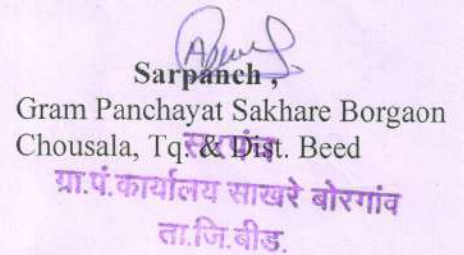 Sarpanch ,
Gram Panchayat Sakhare Borgaon
Chousala, Tq. & Dist. Beed
सरपंच
ग्रा.पं.कार्यालय साखरे बोरगांव
ता.जि.बीड.